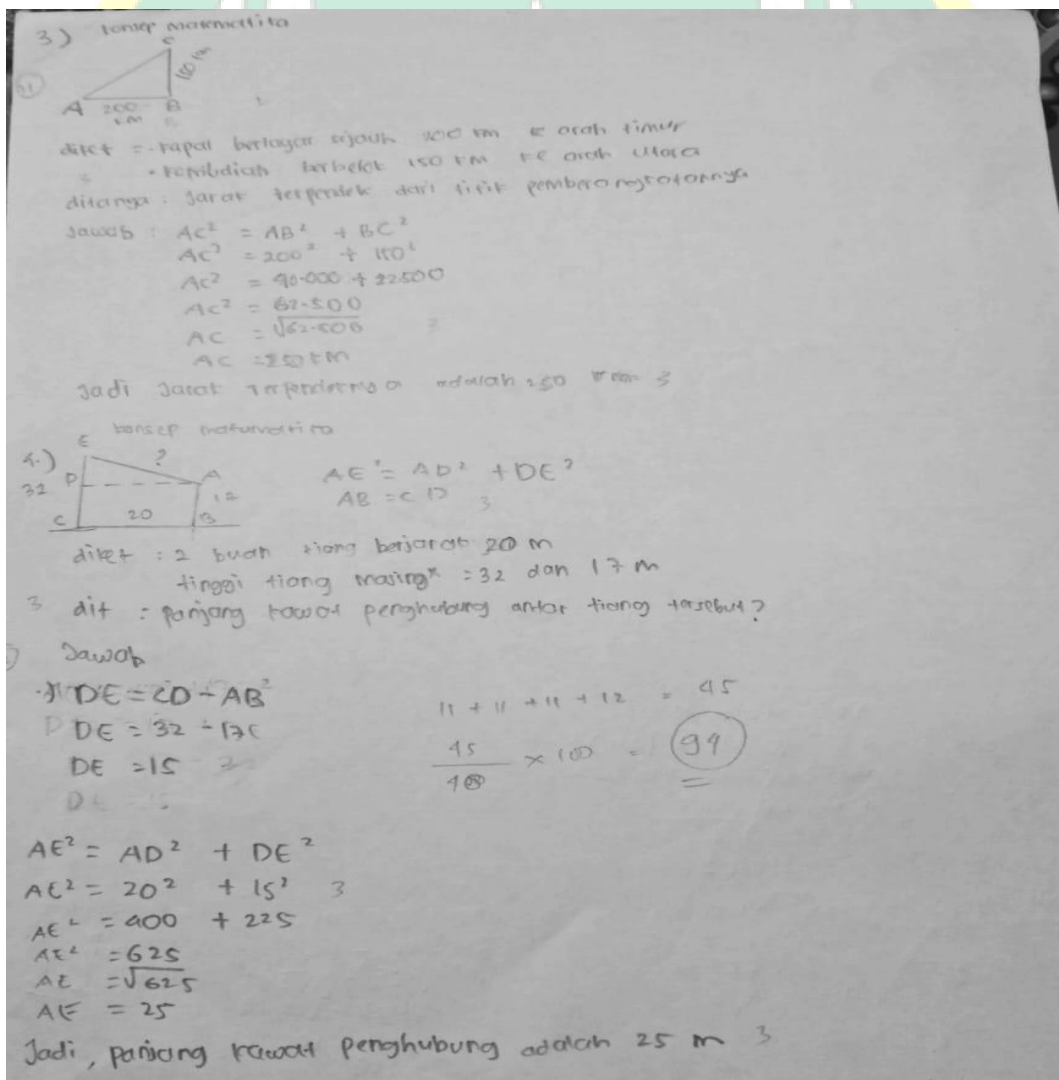 3) konsep matematika
C
150 km
A 200 km B
diket = - kapal berlayar sejauh 200 km ke arah timur
- kemudian berbelok 150 km ke arah Utara
ditanya : Jarak terpendek dari titik pemberangkatannya
Jawab : AC² = AB² + BC²
AC² = 200² + 150²
AC² = 40.000 + 22500
AC² = 62.500
AC = √62.500 3
AC = 250 km
Jadi Jarak terpendeknya adalah 250 km 3
konsep matematika
4.) E ?
32 D A
12
C 20 B
AE² = AD² + DE²
AB = CD 3
diket : 2 buah tiang berjarak 20 m
tinggi tiang masing² = 32 dan 17 m
3 dit : panjang kawat penghubung antar tiang tersebut?
Jawab
DE = CD - AB
DE = 32 - 17
DE = 15
11 + 11 + 11 + 12 = 45
45
48 × 100 = 94
AE² = AD² + DE²
AE² = 20² + 15² 3
AE² = 400 + 225
AE² = 625
AE = √625
AE = 25
Jadi, panjang kawat penghubung adalah 25 m 3